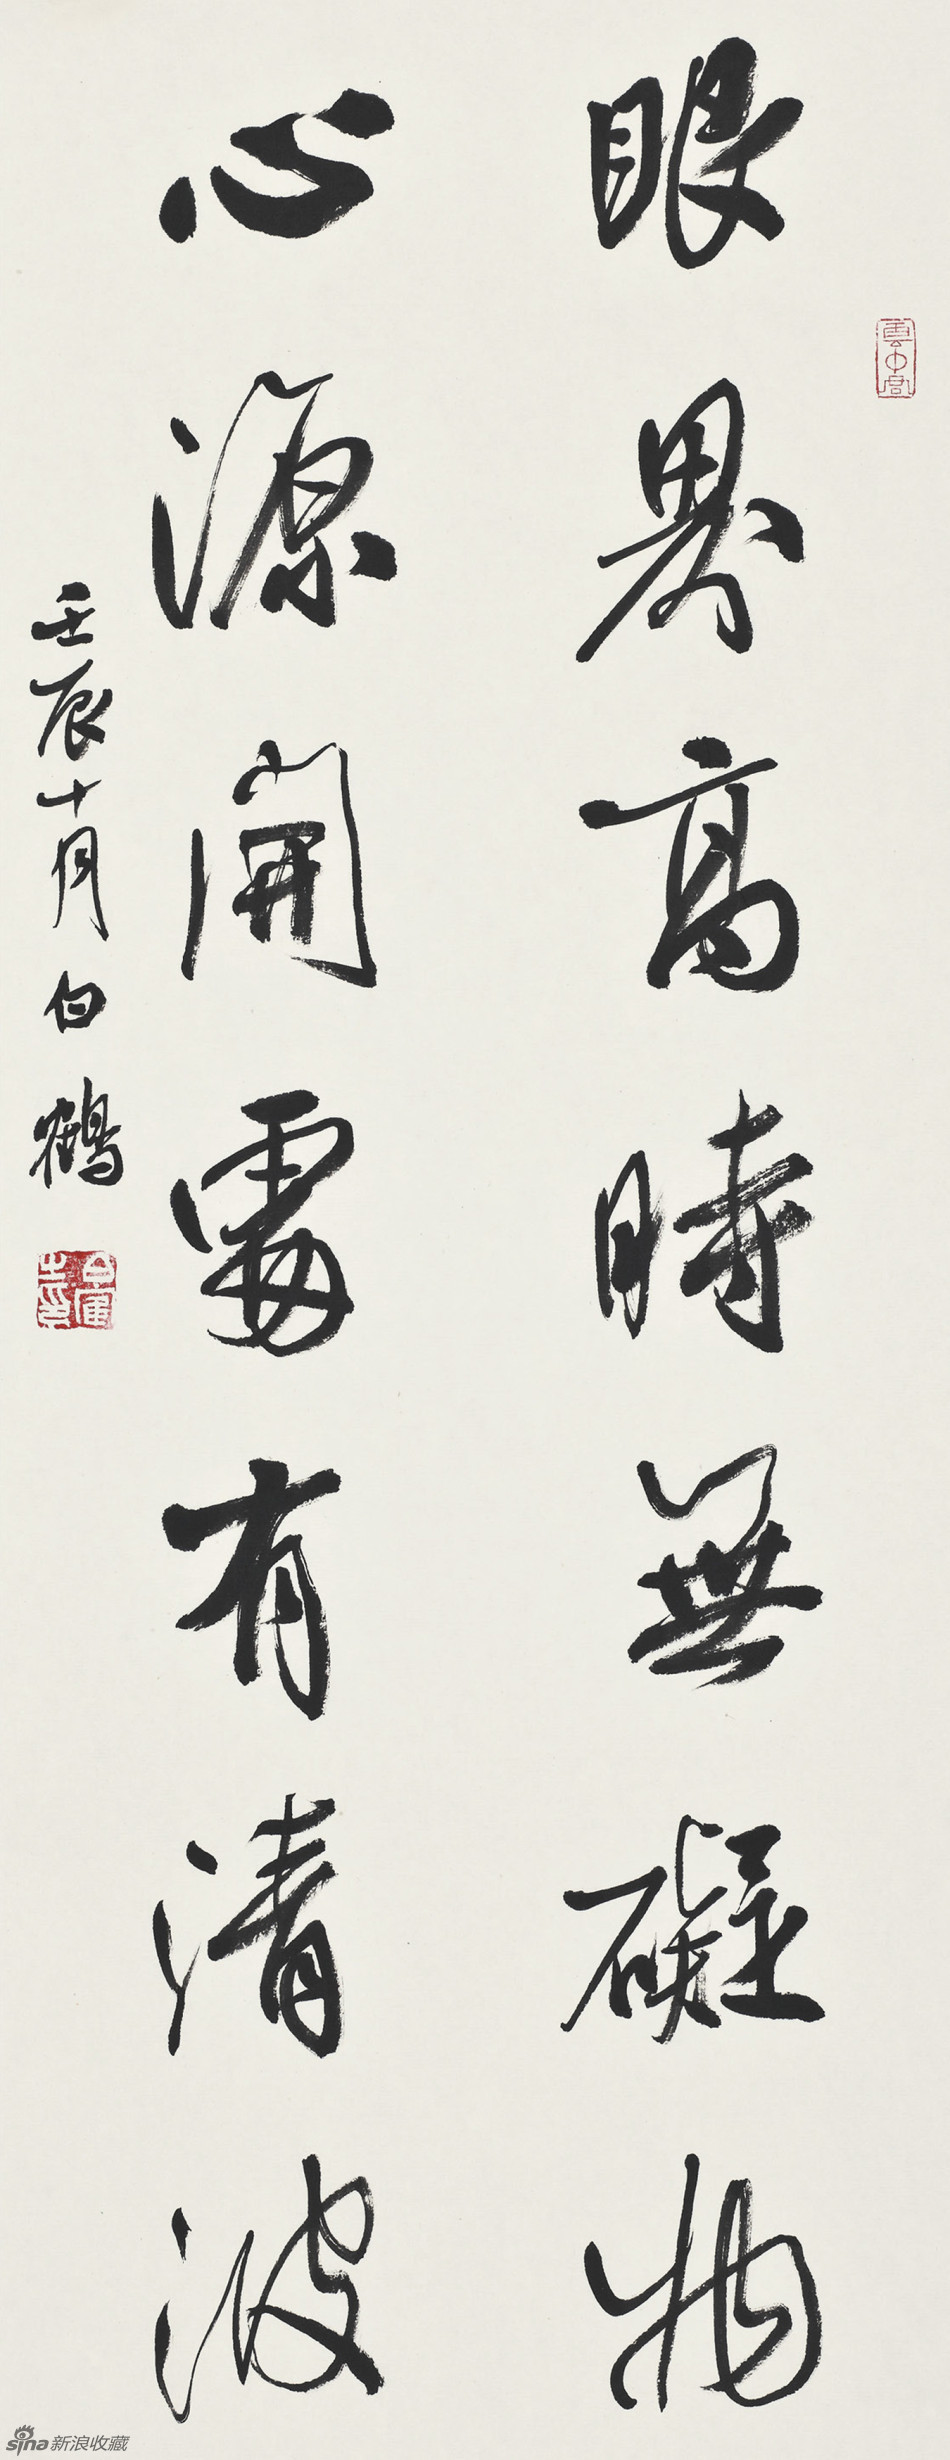 眼界高時無礙物
心源開處有清波
壬辰十月白鶴
雲中白鶴
sina新浪收藏